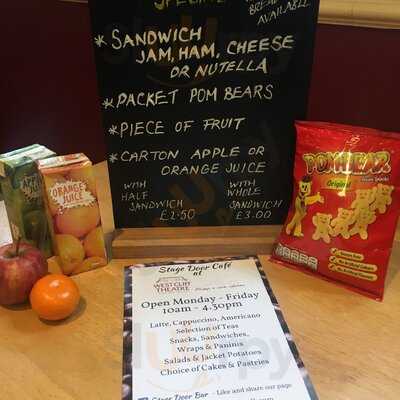 AVAILABLE
* SANDWICH
JAM, HAM, CHEESE
OR NUTELLA
* PACKET POM BEARS
* PIECE OF FRUIT
* CARTON APPLE OR
ORANGE JUICE
WITH HALF SANDWICH £2.50
WITH WHOLE SANDWICH £3.00
ORANGE
JUICE
POM-BEAR
Original
Stage Door Café
at
WESTCLIFF
THEATRE
Open Monday - Friday
10am - 4.30pm
Latte, Cappuccino, Americano
Selection of Teas
Snacks, Sandwiches,
Wraps & Paninis
Salads & Jacket Potatoes
Choice of Cakes & Pastries
Stage Door Bar - Like and share our page